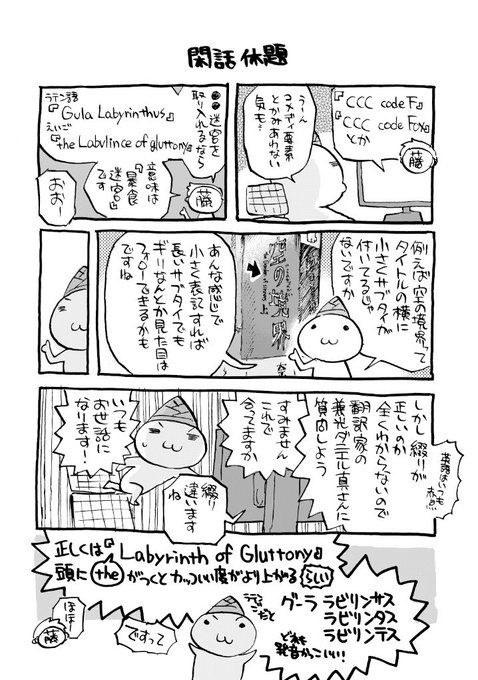 閑話休題
『CCC code F』
『CCC code Fox』
とか
藤
うーん
コメディ要素
とかみあわない
気も・
●●迷宮を
取り入れるなら
ラテン語
『Gula Labyrinthus』
えいご
『the Labulince of gluttony』
意味は
『暴食
迷宮』
です
藤
おおー
例えば『空の境界』って
タイトルの横に
小さくサブタイが
付いてるじゃ
ないですか
空の境界
上
あんな感じで
小さく表記すれば
長いサブタイでも
ギリなんとか見た目は
フォローできるかも
ですね
しかし綴りが
正しいのか
全くわからないので
翻訳家の
兼光ダニエル真さんに
質問しよう
英語はいつも
赤点
すみません
これで
合ってますか
綴り
違います
ね
いつも
お世話に
なります!
正しくは『Labyrinth of Gluttony』
頭に the がつくとカッコいい度がより上がる らしい
ラテン
語だと
グーラ ラビリンサス
ラビリンタス
ラビリンテス
どれも
発音かっこいい!!
ですって
ほほー
藤